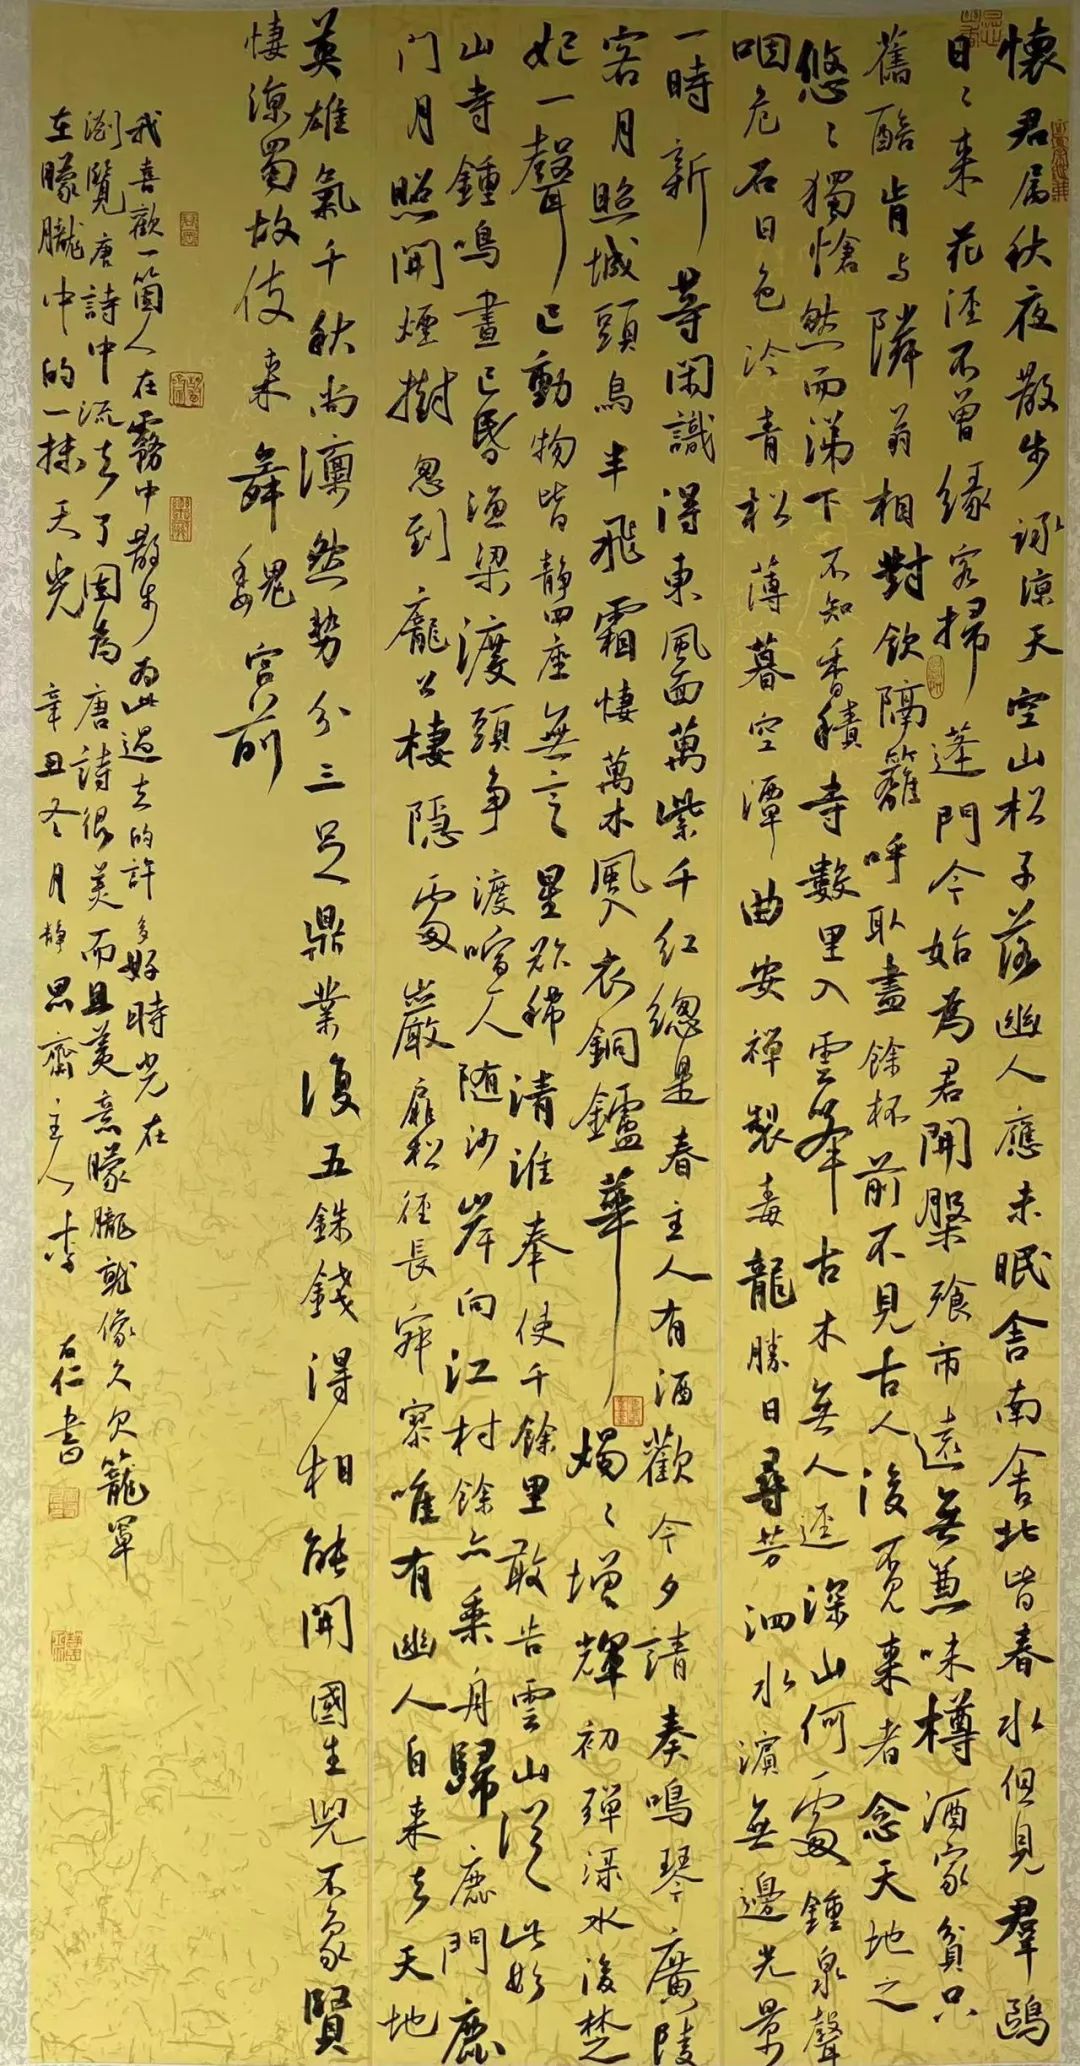 懷君屬秋夜散步詠涼天空山松子落幽人應未眠舍南舍北皆春水但見群鷗
日〻來花逕不曾緣客掃蓬門今始為君開盤飧市遠無兼味樽酒家貧只
舊醅肯与隣翁相對飲隔籬呼取盡餘杯前不見古人後不見來者念天地之
悠〻獨愴然而涕下不知香積寺數里入雲峯古木無人逕深山何處鍾泉聲
咽危石日色冷青松薄暮空潭曲安禪製毒龍勝日尋芳泗水濱無邊光景
一時新等閑識得東風面萬紫千紅總是春主人有酒歡今夕請奏鳴琴廣陵
客月照城頭烏半飛霜悽萬木風入衣銅鑪華燭〻增輝初彈淥水後楚
妃一聲已動物皆靜四座無言星欲稀清淮奉使千餘里敢告雲山從此始
山寺鍾鳴晝已昏漁梁渡頭爭渡喧人随沙岸向江村餘亦乘舟歸鹿門鹿
門月照開煙樹忽到龐公棲隱處巖扉松徑長寂寥唯有幽人自来去天地
英雄氣千秋尚凜然勢分三足鼎業復五銖錢得相能開國生兒不象賢
悽涼蜀故伎来舞魏宮前
我喜歡一箇人在霧中散步為此過去的許多好時光在
瀏覽唐詩中流去了因為唐詩很美而且美意朦朧就像久久籠罩
在朦朧中的一抹天光 辛丑冬月靜思齋主人李右仁書